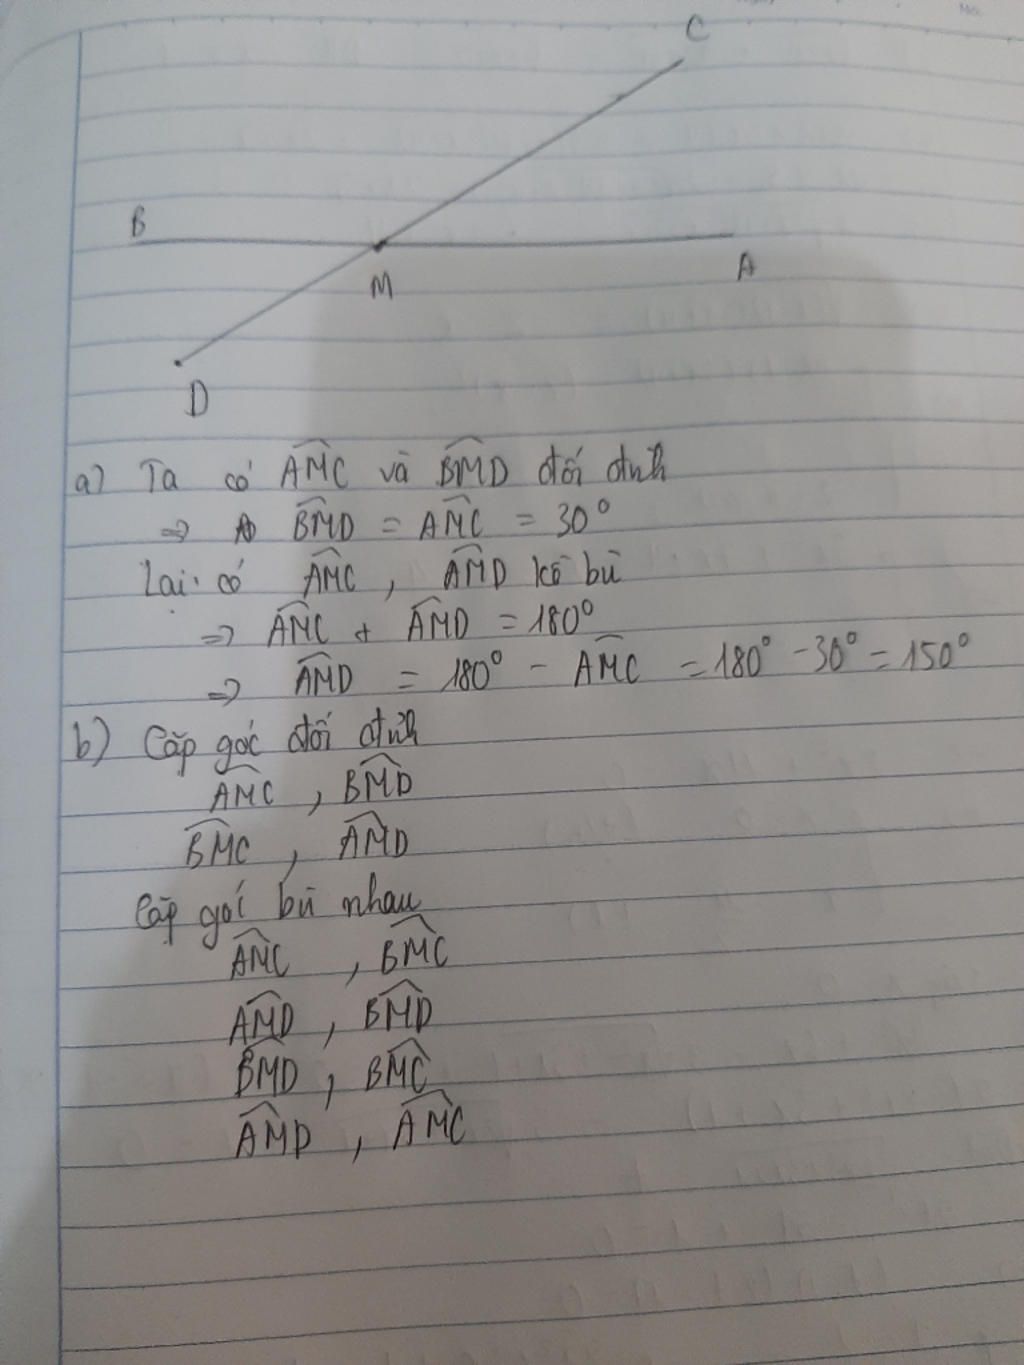 C
B
M
A
D
a) Ta có AMC và BMD đối đỉnh
=> BMD = AMC = 30°
Lại có AMC, AMD kề bù
=> AMC + AMD = 180°
=> AMD = 180° - AMC = 180° - 30° = 150°
b) Cặp góc đối đỉnh
AMC, BMD
BMC, AMD
Cặp góc bù nhau
AMC, BMC
AMD, BMD
BMD, BMC
AMD, AMC